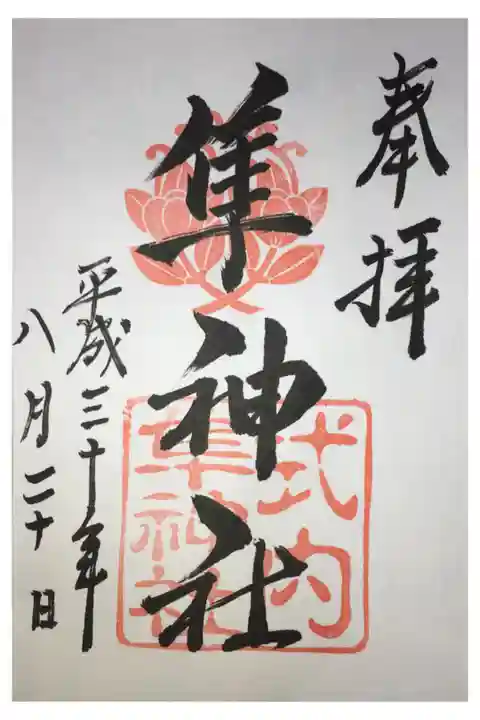 奉拝
隼神社
式内
隼神社
平成三十年
八月二十日